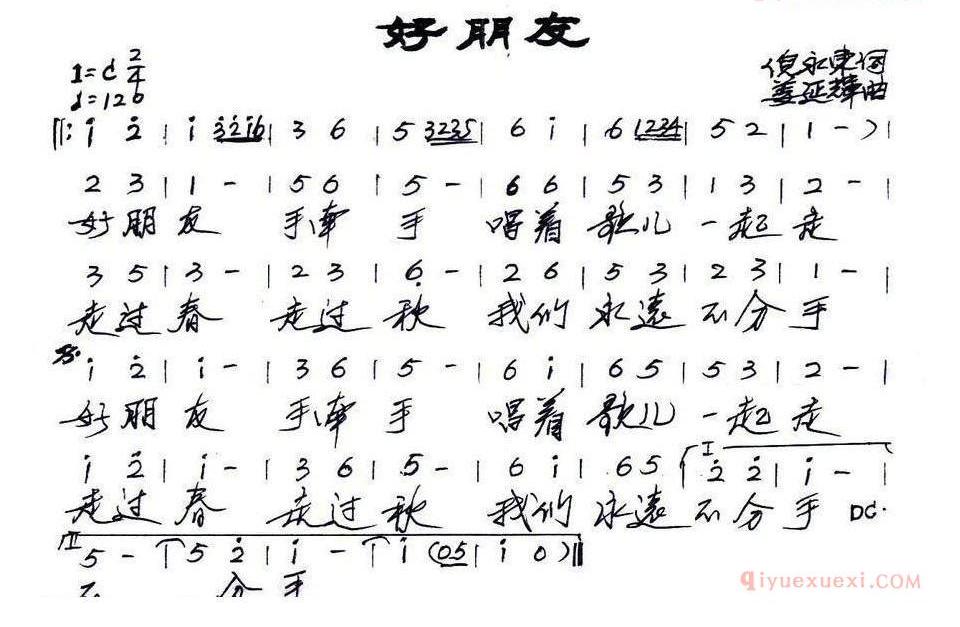 好朋友
1=C 2/4
♩=120
倪永东词
姜延辉曲
‖: i̇ 2̇ | i̇ 3̇2̇i̇6 | 3 6 | 5 3235 | 6 i̇ | 6 1234 | 5 2 | 1 - ) |
2 3 | 1 - | 5 6 | 5 - | 6 6 | 5 3 | 1 3 | 2 - |
好朋友 手牵手 唱着歌儿一起走
3 5 | 3 - | 2 3 | 6̣ - | 2 6 | 5 3 | 2 3 | 1 - |
走过春 走过秋 我们永远不分手
𝄋 i̇ 2̇ | i̇ - | 3 6 | 5 - | 6 i̇ | 6 5 | 5 3 | 2 - |
好朋友 手牵手 唱着歌儿一起走
i̇ 2̇ | i̇ - | 3 6 | 5 - | 6 i̇ | 6 5 | I 2̇ 2̇ | i̇ - |
走过春 走过秋 我们永远不分手 DC.
II 5 - | 5 2̇ | i̇ - | i̇ (05 | i̇ 0 )‖
不 分手
qiyuexuexi.COM